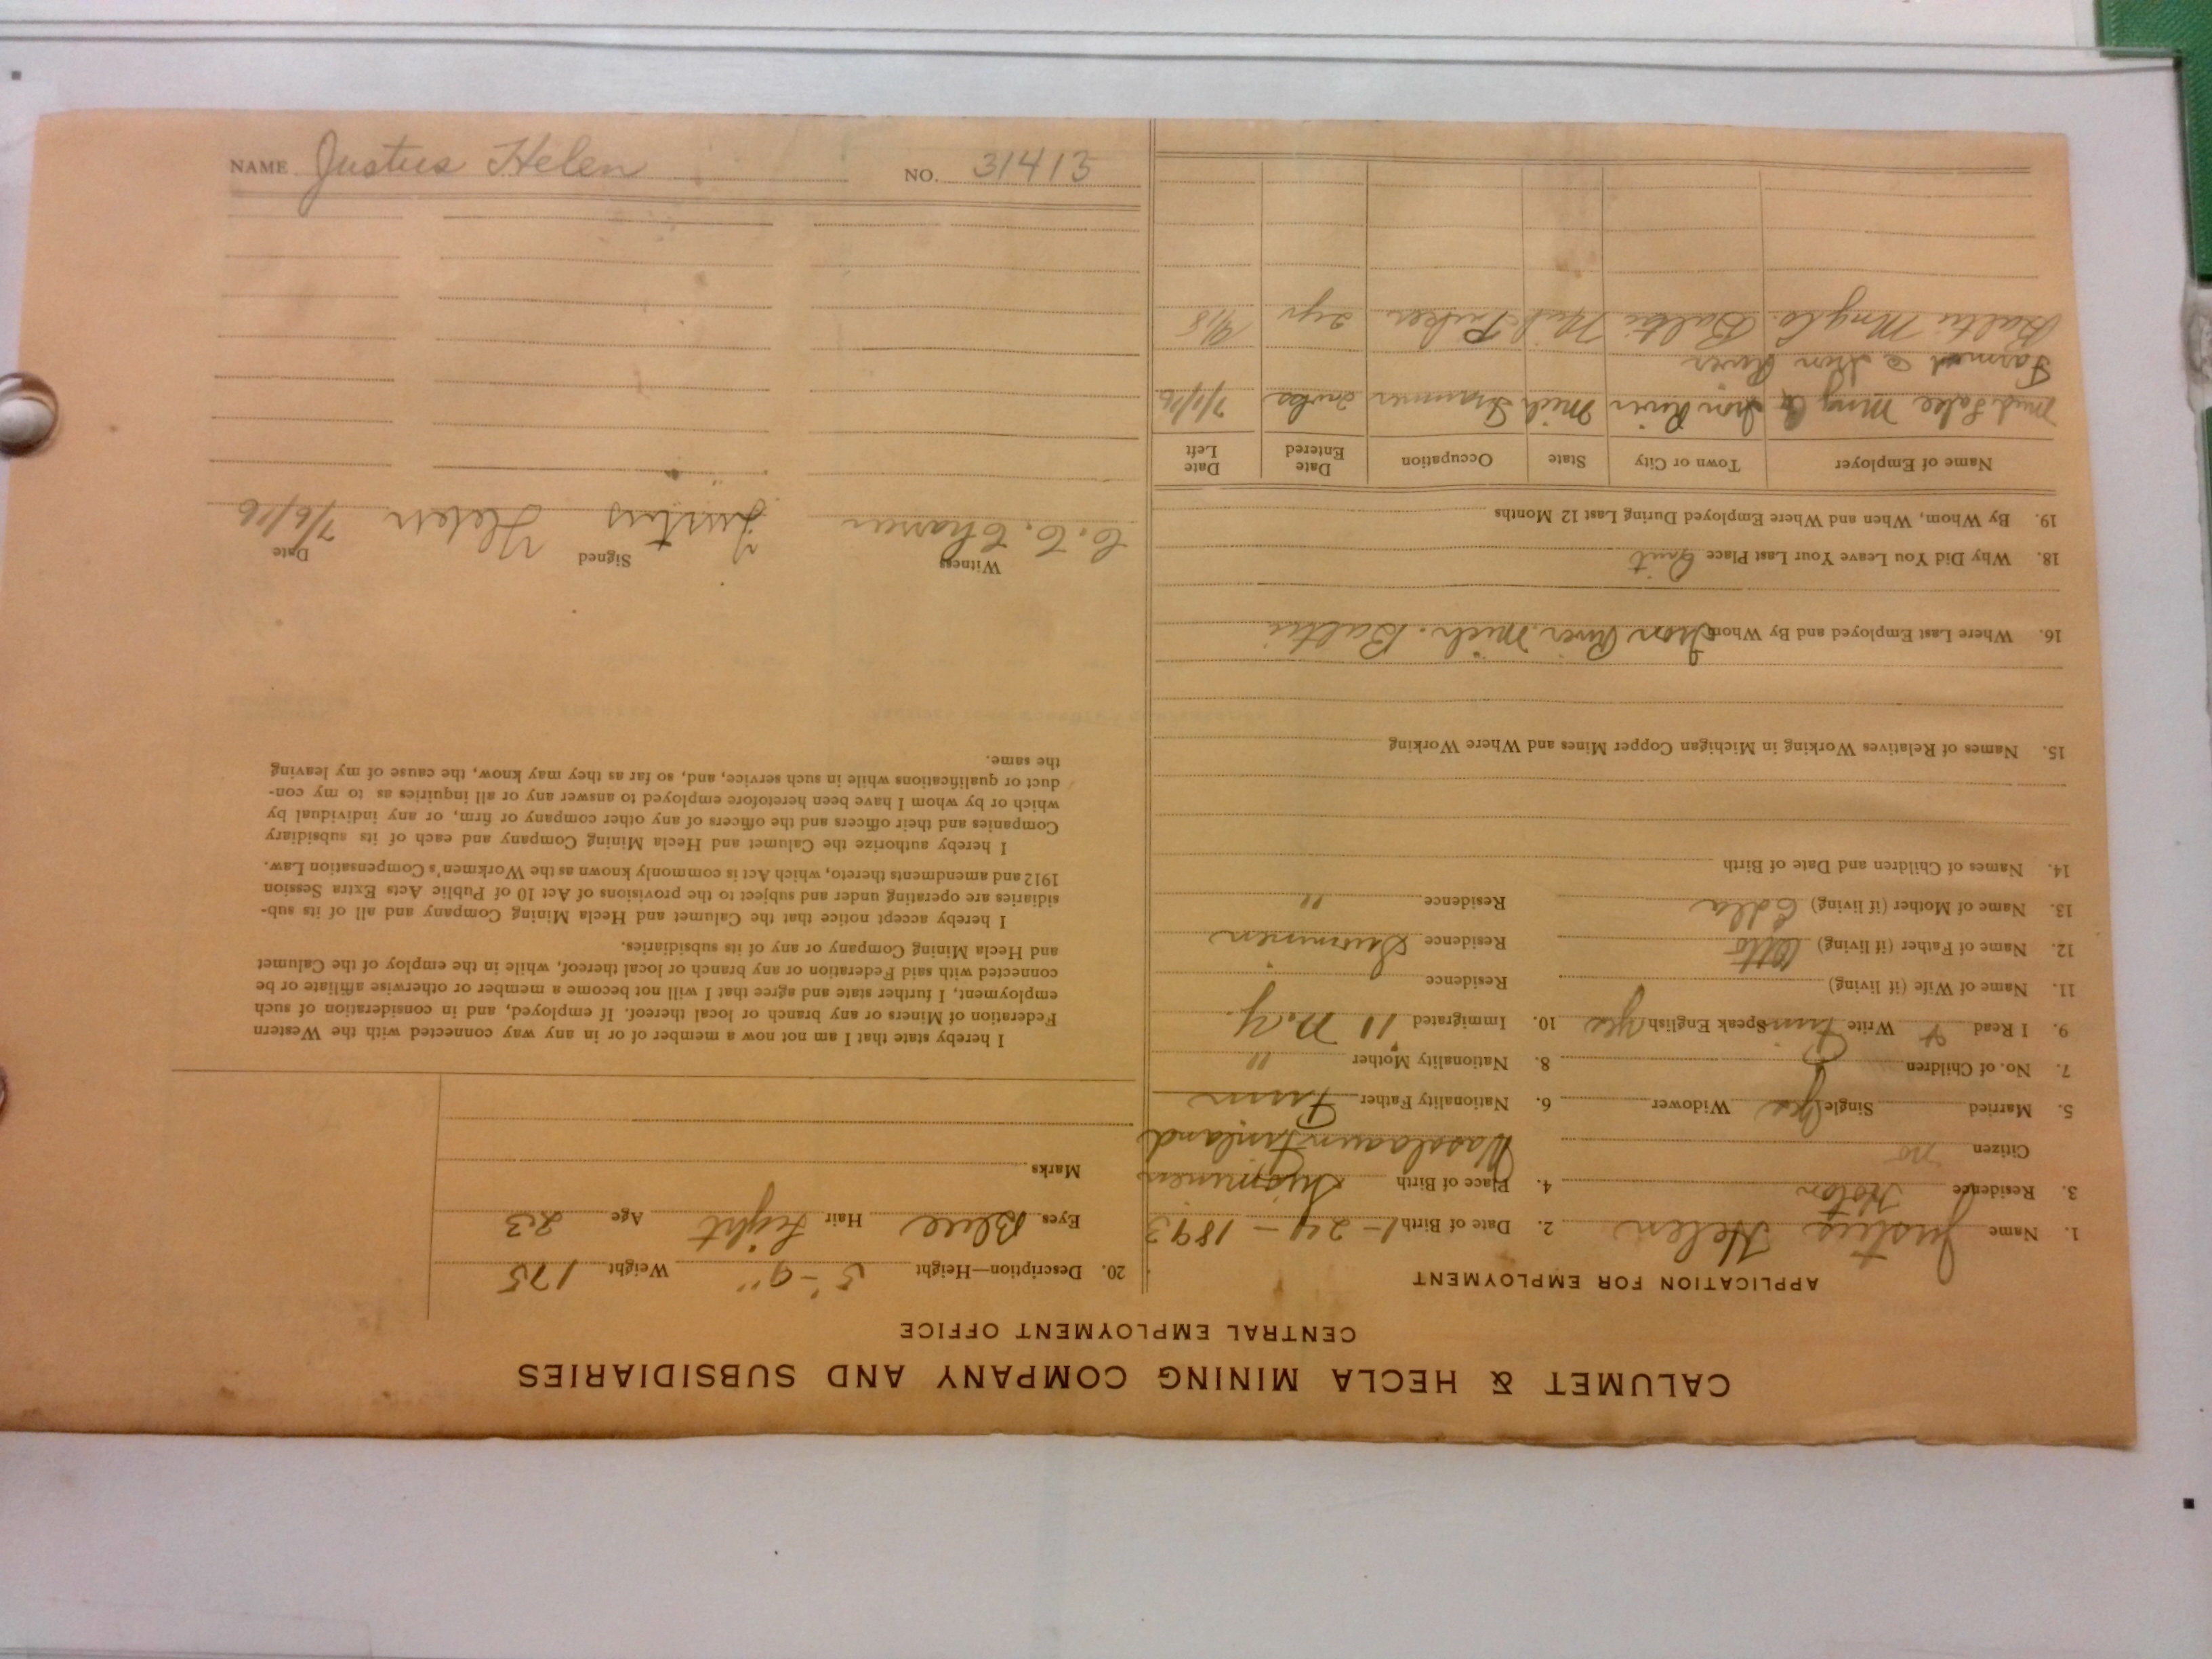 NAME Justus Helen NO. 31413
CALUMET & HECLA MINING COMPANY AND SUBSIDIARIES
CENTRAL EMPLOYMENT OFFICE
APPLICATION FOR EMPLOYMENT
1. Name Justus Helen 2. Date of Birth 1-24-1893
3. Residence 4. Place of Birth
Citizen no Finland
5. Married Single yes Widower 6. Nationality Father Finn
7. No. of Children 8. Nationality Mother "
9. I Read & Write Finn Speak English yes 10. Immigrated 11 N.Y.
11. Name of Wife (if living) Residence
12. Name of Father (if living) Otto Residence
13. Name of Mother (if living) Edla Residence "
14. Names of Children and Date of Birth
15. Names of Relatives Working in Michigan Copper Mines and Where Working
16. Where Last Employed and By Whom Iron River Mich. Baltic
18. Why Did You Leave Your Last Place Quit
19. By Whom, When and Where Employed During Last 12 Months
Name of Employer Town or City State Occupation Date Entered Date Left
Mng Co Iron River Mich Trammer 7/1/16
Farmed @ Iron River
Baltic Mng Co. Baltic Mich 2 yr
20. Description—Height 5'-9" Weight 175
Eyes Blue Hair Light Age 23
Marks
I hereby state that I am not now a member of or in any way connected with the Western
Federation of Miners or any branch or local thereof. If employed, and in consideration of such
employment, I further state and agree that I will not become a member or otherwise affiliate or be
connected with said Federation or any branch or local thereof, while in the employ of the Calumet
and Hecla Mining Company or any of its subsidiaries.
I hereby accept notice that the Calumet and Hecla Mining Company and all of its sub-
sidiaries are operating under and subject to the provisions of Act 10 of Public Acts Extra Session
1912 and amendments thereto, which Act is commonly known as the Workmen's Compensation Law.
I hereby authorize the Calumet and Hecla Mining Company and each of its subsidiary
Companies and their officers and the officers of any other company or firm, or any individual by
which or by whom I have been heretofore employed to answer any or all inquiries as to my con-
duct or qualifications while in such service, and, so far as they may know, the cause of my leaving
the same.
Witness Signed Date
Justus Helen 7/6/16